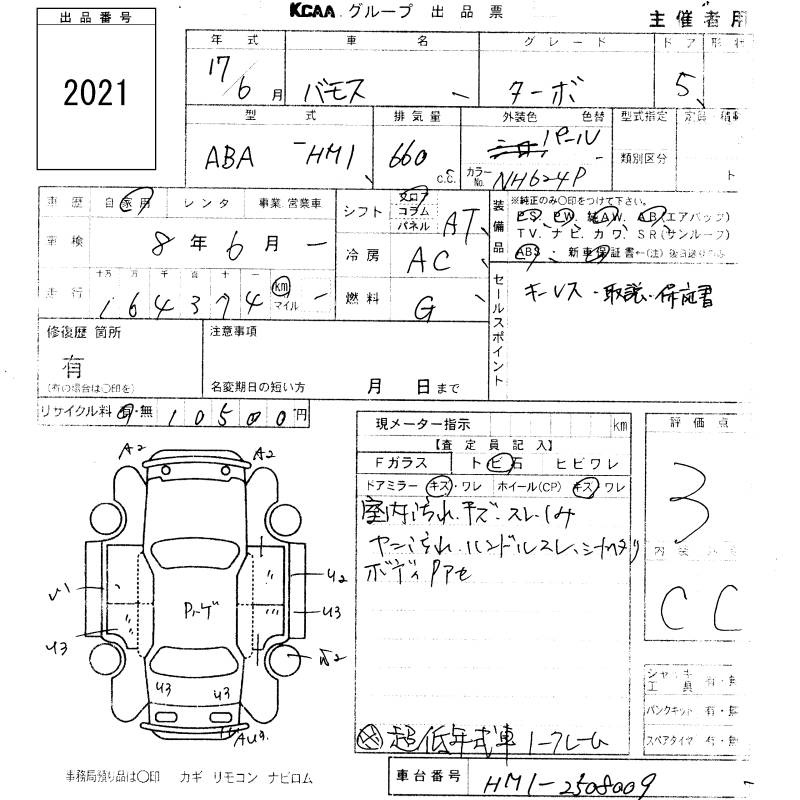 KCAA グループ 出品票
主催者用
出品番号
2021
年式 車名 グレード ドア 形状
17/6月 バモス ターボ 5
型式 排気量 外装色 色替 型式指定 定員 積車
ABA -HM1 660 c.c. パール
カラーNo. NH624P
類別区分 ト
車歴 自家用 レンタ 事業 営業車
車検 8年6月
走行 十万 万 千 百 十 一
164374 km マイル
シフト フロア コラム パネル AT
冷房 AC
燃料 G
装備品 ※純正のみ○印をつけて下さい。
P.S. P.W. 純A.W. A.B.(エアバッグ)
T.V. ナビ. カワ. S.R.(サンルーフ)
ABS 新車保証書←(注)後日送りのみ
セールスポイント
キーレス・取説・保証書
修復歴 箇所
有
(有の場合は○印を)
注意事項
名変期日の短い方 月 日まで
リサイクル料 有・無 10500円
現メーター指示 km
【査定員記入】
Fガラス トビ石 ヒビワレ
ドアミラー キズ・ワレ ホイール(CP) キズ・ワレ
室内汚れ・キズ・スレ・しみ
ヤニ汚れ・ハンドルスレ・シートヘタリ
ボディ
評価点
3
内装
C C
A2 A2
U2
U3
U3
U3 U3
ジャッキ 工具 有・無
パンクキット 有・無
スペアタイヤ 有・無
超低年式車
事務局預り品は○印 カギ リモコン ナビロム
車台番号 HM1-2508009